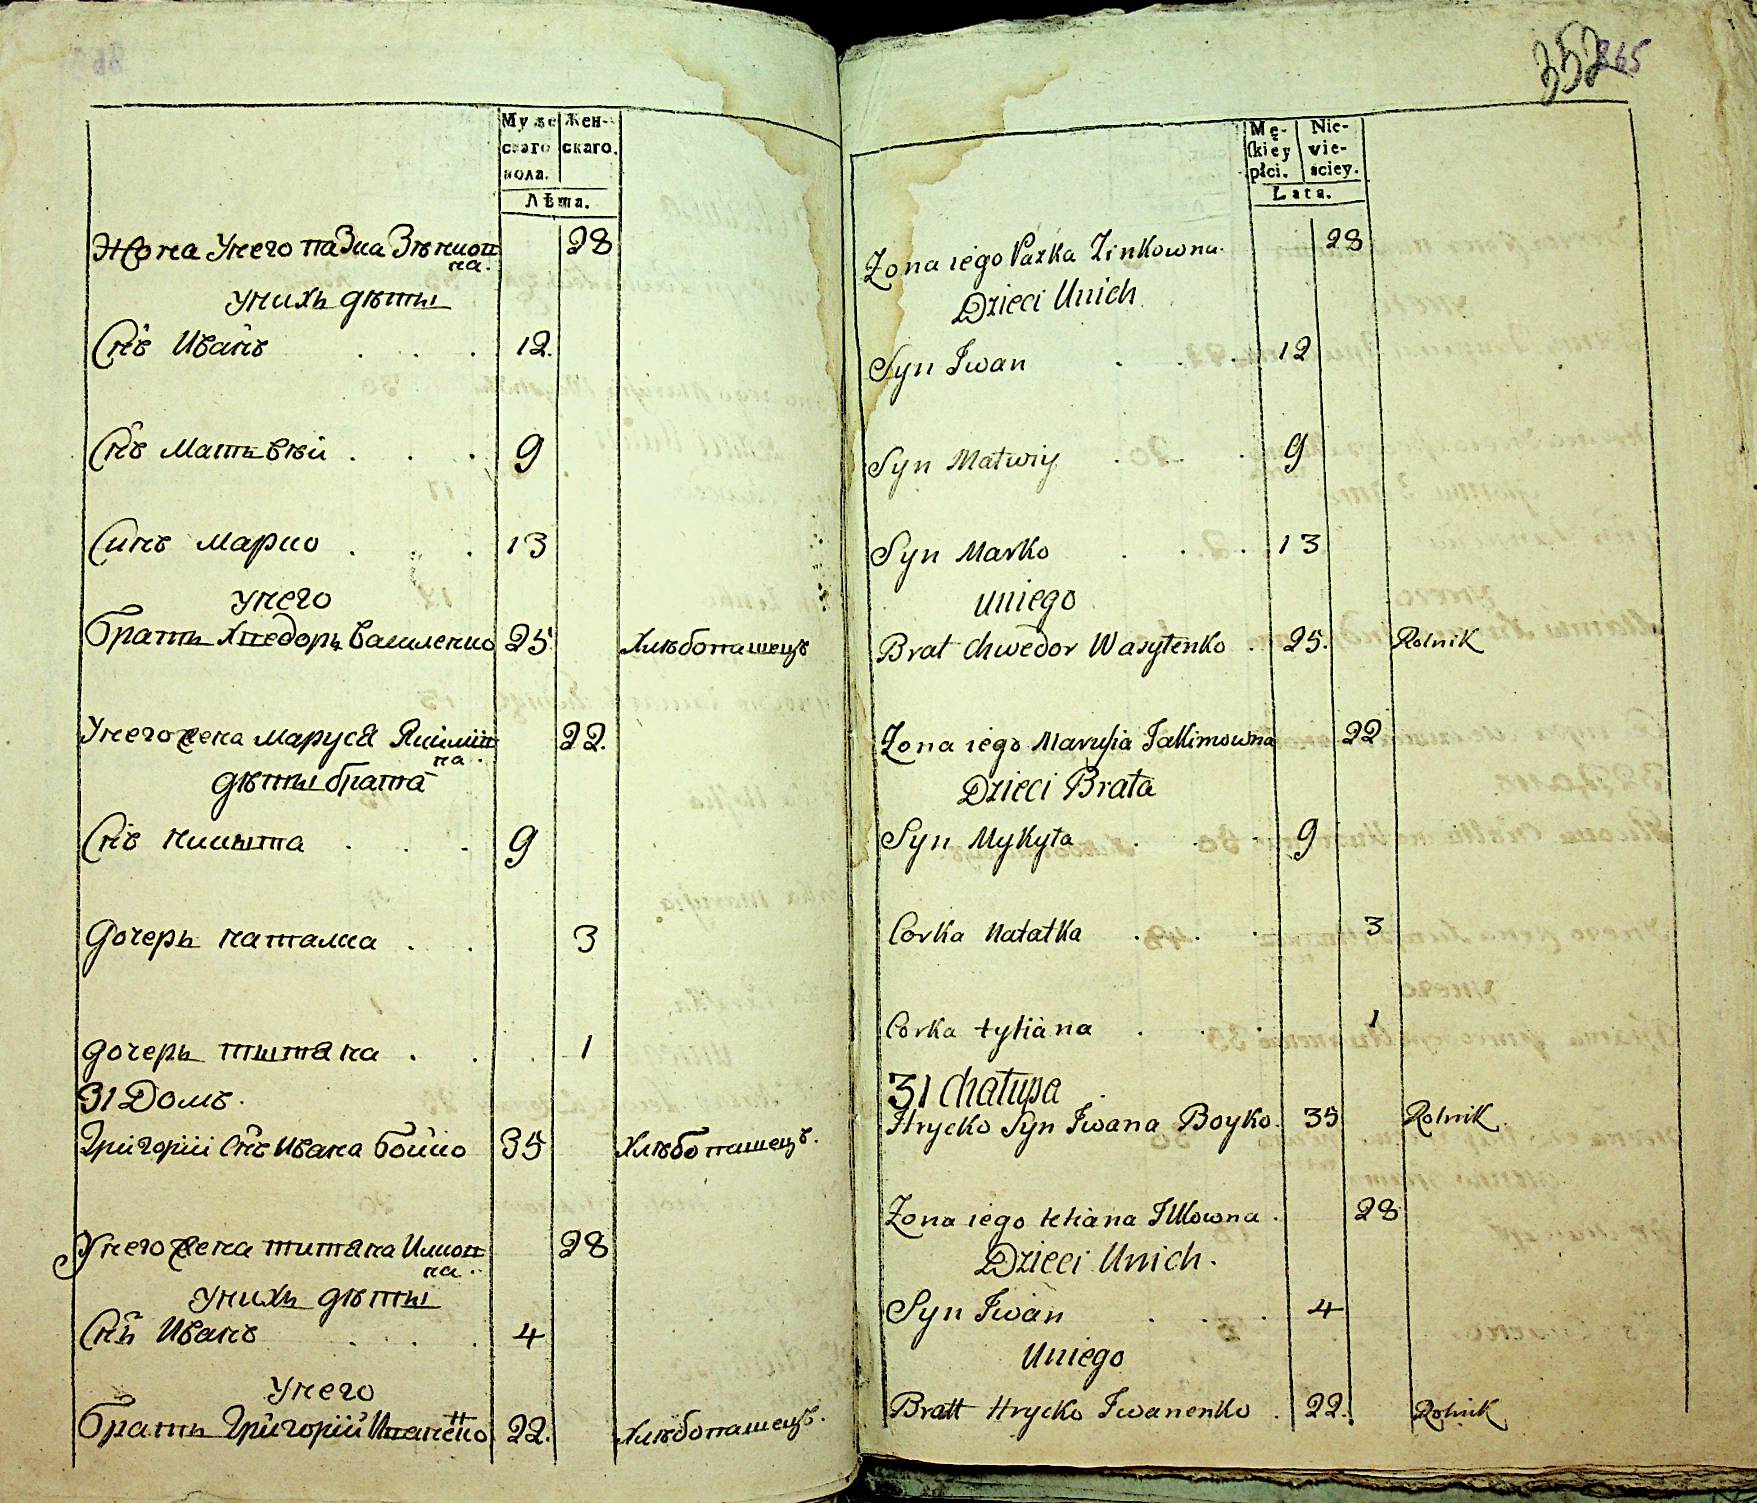 Муже
скаго
пола.
Жен-
скаго.
Лѣта.
Жона Унего паѕка Зѣнков
на.
28
Унихъ дѣти
Снъ Иванъ . . . 12.
Снъ Матьвѣй . . . 9
Синъ Марко . . . 13
Унего
Братъ Хведоръ Василенко 25 Хлѣбопашецъ
Унего жена Маруся Якимов
на.
22.
дѣти брата
Снъ Микита . . . 9
Дочеръ наталка . . 3
дочеръ титяна . . . 1
31 Домъ.
Григорій Снъ Ивана Бойко 35 Хлѣбопашецъ.
Унего жена титяна Илков
на.
28
Унихъ дѣти
Снъ Иванъ . . . 4
Унего
Братъ Григорій Иваненко 22. Хлѣбопашецъ.
352 865
Mę-
skiey
płci.
Nie-
wie-
sciey.
Lata.
Zona iego Pazka Zinkowna. 28
Dzieci Unich
Syn Iwan . . . 12
Syn Matwiy . . . 9
Syn Marko . . . 13
uniego
Brat Chwedor Wasylenko . 25. Rolnik
Zona iego Marusia Jakimowna 22
Dzieci Brata
Syn Mykyta . . . 9
Corka Natałka . . . 3
Corka tytiana . . . 1
31 Chałupa
Hrycko Syn Iwana Boyko. 35 Rolnik.
Zona iego tetiana Illkowna . 28
Dzieci Unich.
Syn Iwan . . . 4
Uniego
Bratt Hrycko Iwanenko . 22. Rolnik